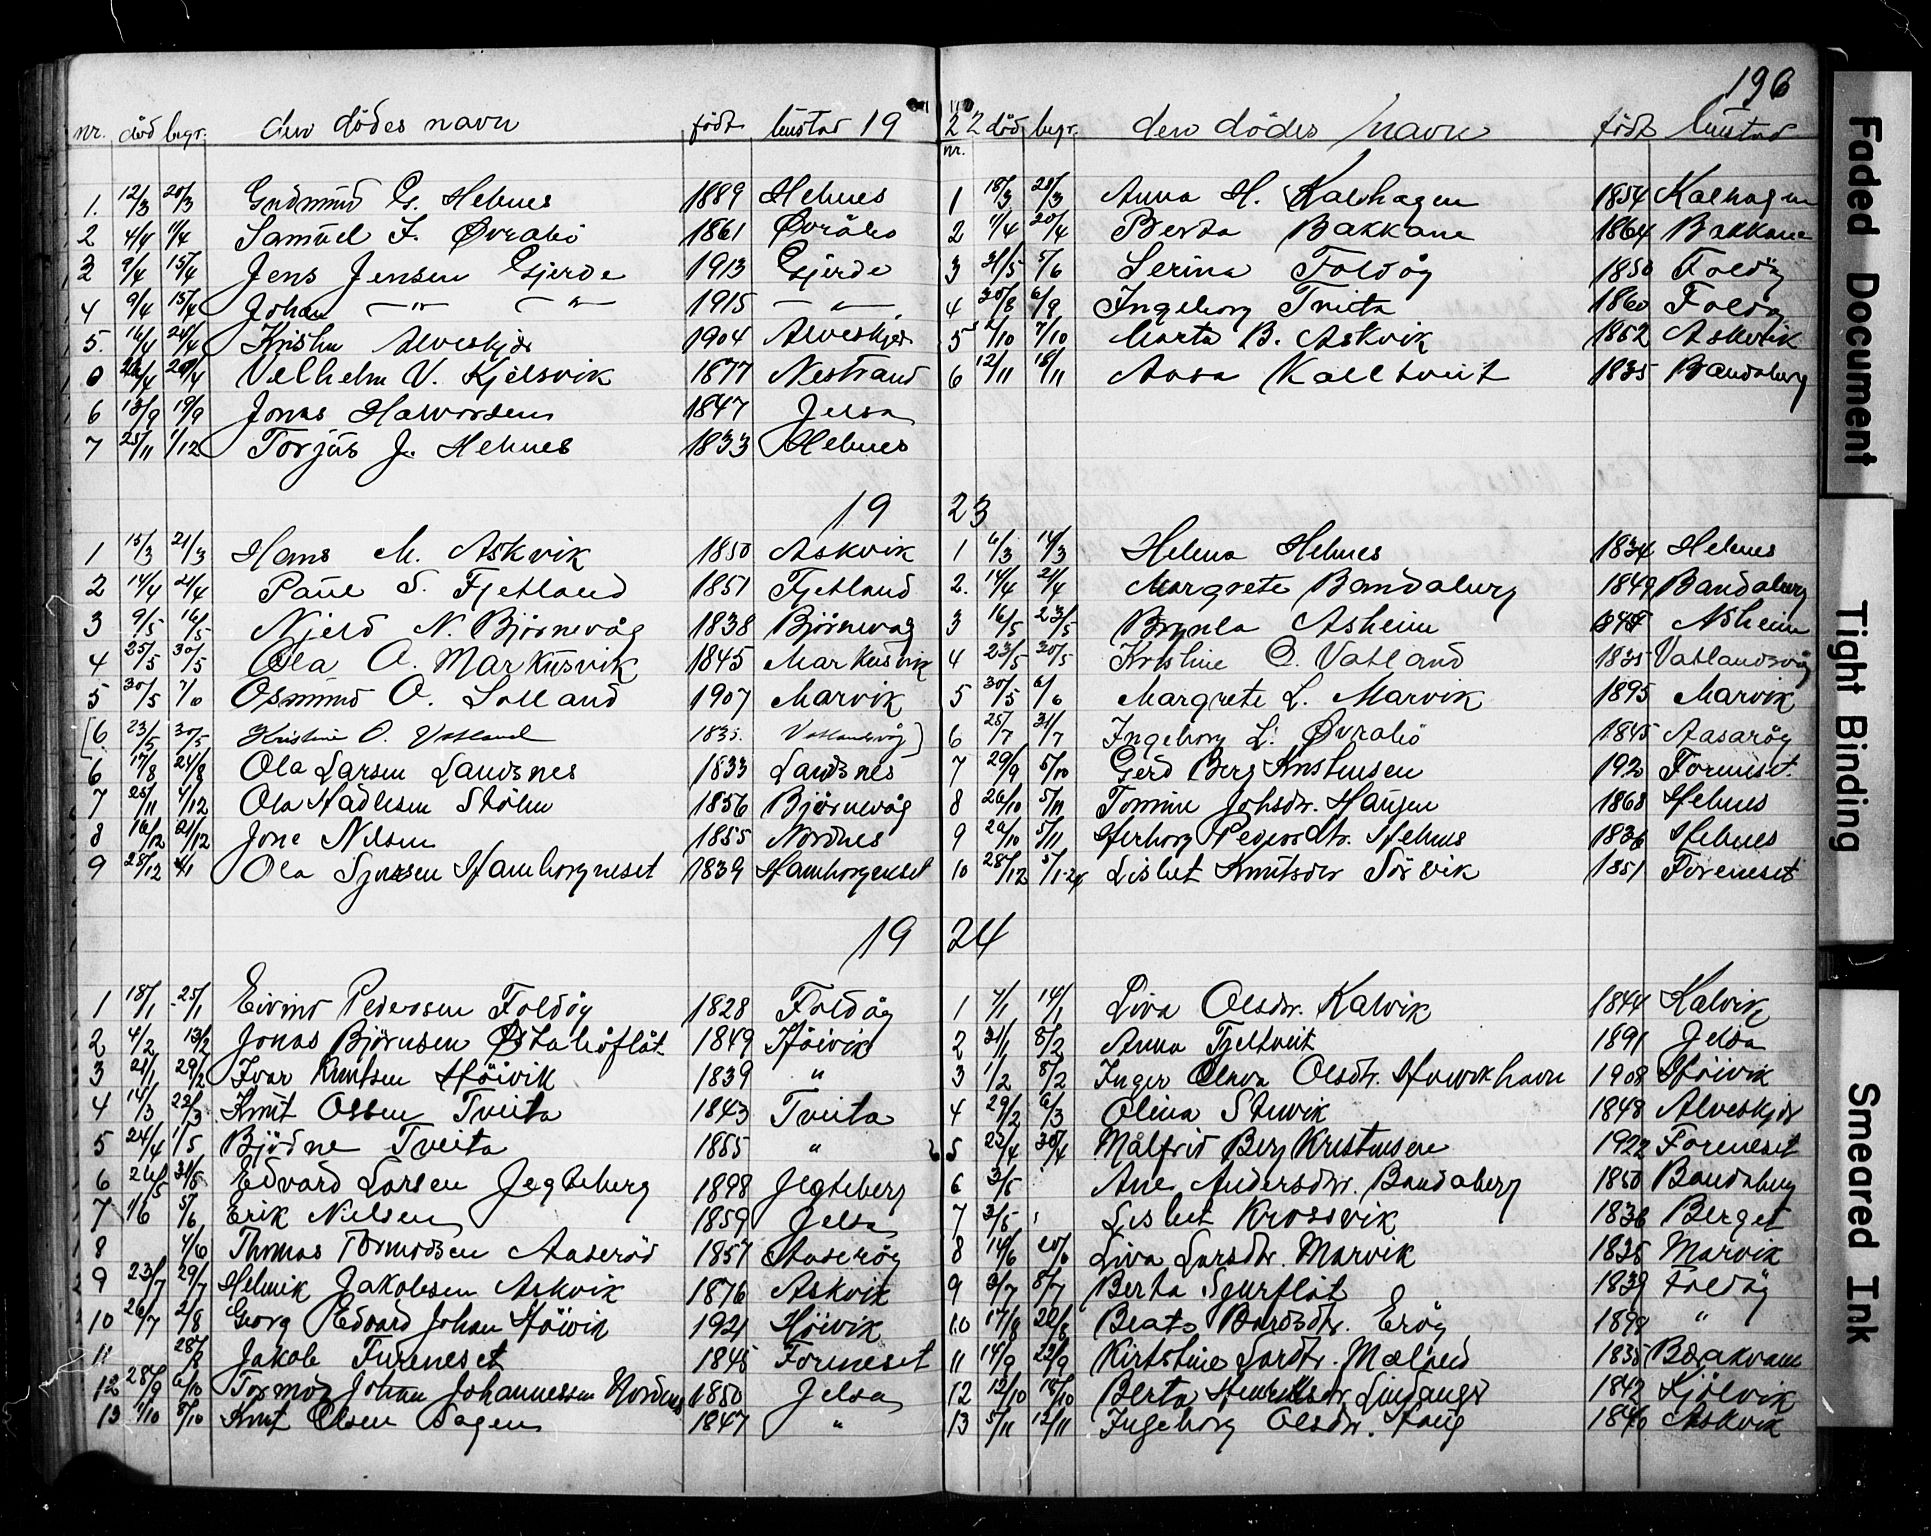 196
nr. död begr. den dödes navn födt bustad 19
22 död begr. den dödes navn födt bustad
nr.
1. 12/3 20/3 Gudmund G. Hebnes 1889 Hebnes
2 4/4 11/4 Samuel J. Øvrabö 1861 Øvråbö
3 9/4 15/4 Jens Jensen Gjerde 1913 Gjerde
4 9/4 15/4 Johan — " — — " — 1915 — " —
5. 16/4 24/4 Kristen Alveskjær 1904 Alveskjær
6 Velhelm V. Kjølsvik 1877 Nestrand
6 13/9 19/9 Jonas Halvorsen 1847 Jelsa
7 25/11 1/12 Torjus J. Hebnes 1833 Hebnes
1 18/3 25/3 Anna H. Kalhagen 1854 Kalhagen
2 11/4 20/4 Berta Bakkane 1864 Bakkane
3 31/5 5/6 Serina Foldöy 1850 Foldöy
4 30/8 6/9 Ingeborg Tveita 1860 Foldöy
5 2/10 7/10 Marta B. Askvik 1852 Askvik
6 12/11 18/11 Aasa Kalltveit 1835 Bandaberg
19 23
1 15/3 21/3 Hans M. Askvik 1850 Askvik
2 14/4 21/4 Paul S. Fjetland 1851 Fjetland
3 9/5 16/5 Njeld N. Bjørnevåg 1838 Bjørnevåg
4 25/5 30/5 Ola O. Markusvik 1845 Markusvik
5 30/5 7/6 Osmund O. Solland 1907 Marvik
[6 23/5 30/5 Kristine O. Vatland 1835. Vatlandsvåg]
6 17/8 24/8 Ola Larsen Landsnes 1833 Landsnes
7 25/11 4/12 Ola Hadlesen Stölen 1856 Bjørnevåg
8 16/12 21/12 Jone Nilsen 1855 Nordnes
9 28/12 4/1 Ola Sjursen Hamborgneset 1839 Hamborgneset
1 6/3 14/3 Helena Hebnes 1834 Hebnes
2. 14/4 21/4 Margrete Bandaberg 1849 Bandaberg
3 16/5 23/5 Brynla Asheim Asheim
4 23/5 30/5 Kristine O. Vatland 1835 Vatlandsvåg
5 30/5 6/6 Margrete L. Marvik 1895 Marvik
6 25/7 31/7 Ingeborg L. Øvrabö 1845 Aasaröy
7 29/9 5/10 Gerd Berg Kristensen 192 Foreneset.
8 26/10 5/11 Tomine Johsdr. Haugen 1868 Hebnes
9 29/10 5/11 Herborg Pedersdtr. Hebnes 1836 Hebnes
10 28/12 5/1-24 Lisbet Knutsdr Sörvik 1851 Foreneset
19 24
1 18/1 25/1 Eivind Pedersen Foldöy 1828 Foldöy
2 4/2 13/2 Jonas Björnsen Østaböflåt 1849 Höivik
3 21/1 29/2 Ivar Knutsen Höivik 1839 "
4 14/3 22/3 Knut Olsen Tveita 1843 Tveita
5 24/4 1/5 Björne Tveita 1885 "
6 26/5 31/5 Edvard Larsen Jegteberg 1898 Jegteberg
7 1/6 5/6 Erik Nielsen 1859 Jelsa
8 4/6 Thomas Tormodsen Aaseröd 1857 Aaseröy
9 23/7 29/7 Helmik Jakobsen Askvik 1876 Askvik
10 26/7 2/8 Georg Edvard Johan Höivik 1921 Höivik
11 28/8 Jakob Fureneset 1845 Foreneset
12 28/9 6/10 Tormod Johan Johannessen Nordnes 1850 Jelsa
13 1/10 8/10 Knut Olsen Hagen 1847 "
1 7/1 14/1 Liva Olsdr. Kalvik 1844 Kalvik
2 31/1 8/2 Anna Tjeltveit 1891 Jelsa
3 1/2 8/2 Inger Olava Olsdtr. 1908 Höivik
4 29/2 6/3 Olina Stuvik 1848 Alveskjær
5 22/4 30/4 Målfrid Berg Kristensen 1922 Foreneset
6 3/5 Ane Andersdtr. Bandaberg 1850 Bandaberg
7 3/5 Lisbet Krossvik 1836 Berget
8 14/6 20/6 Liva Larsdtr. Marvik 1835 Marvik
9 3/7 8/7 Berta Spurflåt 1839 Foldöy
10 17/8 22/8 Beata Bårdsdtr. Eröy 1898 "
11 14/9 22/9 Kirtstine Lardtr. Mæland 1835 Bakkane
12 12/10 18/10 Berta Henriksdr Lindanger 1842 Kjölvik
13 5/11 12/11 Ingeborg Olsdtr. Haug 1846 Askvik
Faded Document
Tight Binding
Smeared Ink